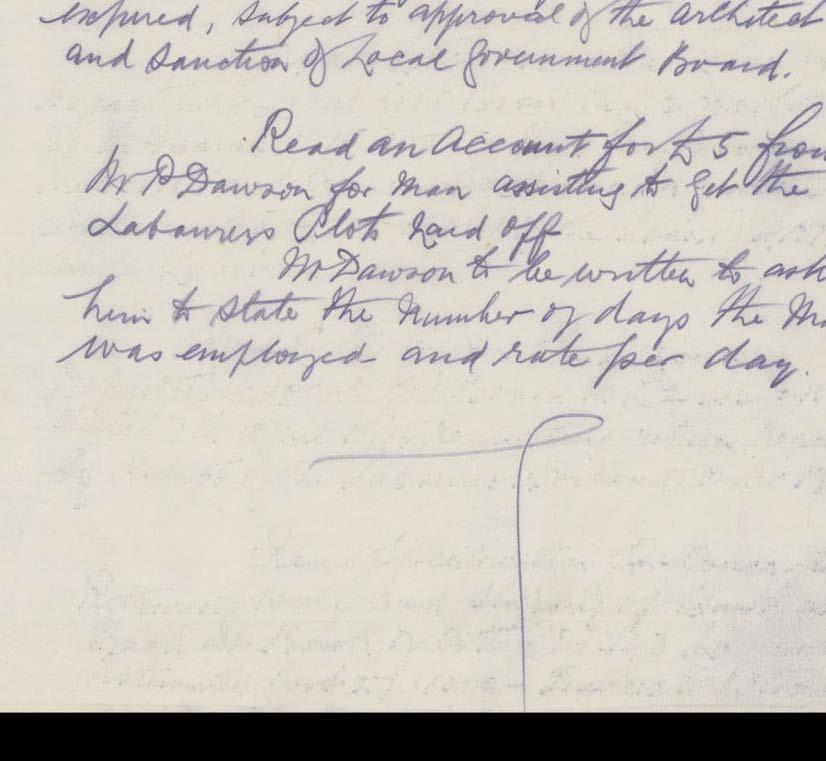 expired, subject to approval of the Architect
and Sanction of Local Government Board.
Read an Account for £5 from
Mr P Dawson for Man assisting to get the
Labourers Plots Laid off
Mr Dawson to be written to ask
him to state the Number of days the Ma
was employed and rate per day.